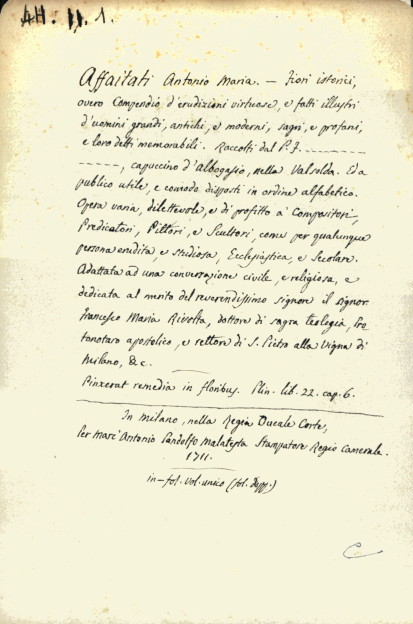 AH. II. 1.
Affaitati Antonio Maria. — Fiori istorici,
overo Compendio d'erudizioni virtuose, e fatti illustri
d'uomini grandi, antichi, e moderni, sagri, e profani,
e loro detti memorabili. Raccolti dal P. F. ------------
-------, capuccino d'Albogasio, nella Valsolda. Ed a
publico utile, e comodo disposti in ordine alfabetico.
Opera varia, dilettevole, e di profitto a' Compositori,
Predicatori, Pittori, e Scultori, come per qualunque
persona erudita e studiosa, Ecclesiastica, e Secolare.
Adattata ad una conversazione civile, e religiosa, e
dedicata al merito del reverendissimo signore il signor
Francesco Maria Rivolta, dottore di sagra teologia, Pro
tonotaro apostolico, e rettore di S. Pietro alla Vigna di
Milano, &c.
Pinxerat remedia in floribus. Plin. lib. 22. cap. 6.
In Milano, nella Regia Ducale Corte,
Per Marc'Antonio Pandolfo Malatesta Stampatore Regio Camerale.
1711.
in-fol. vol. unico (fol.
C